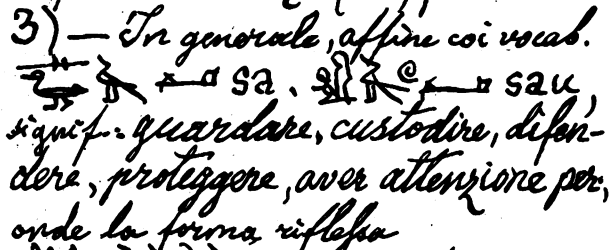 3) — In generale, affine coi vocab.
sa. sau,
signif.: guardare, custodire, difen-
dere, proteggere, aver attenzione per,
onde la forma riflessa